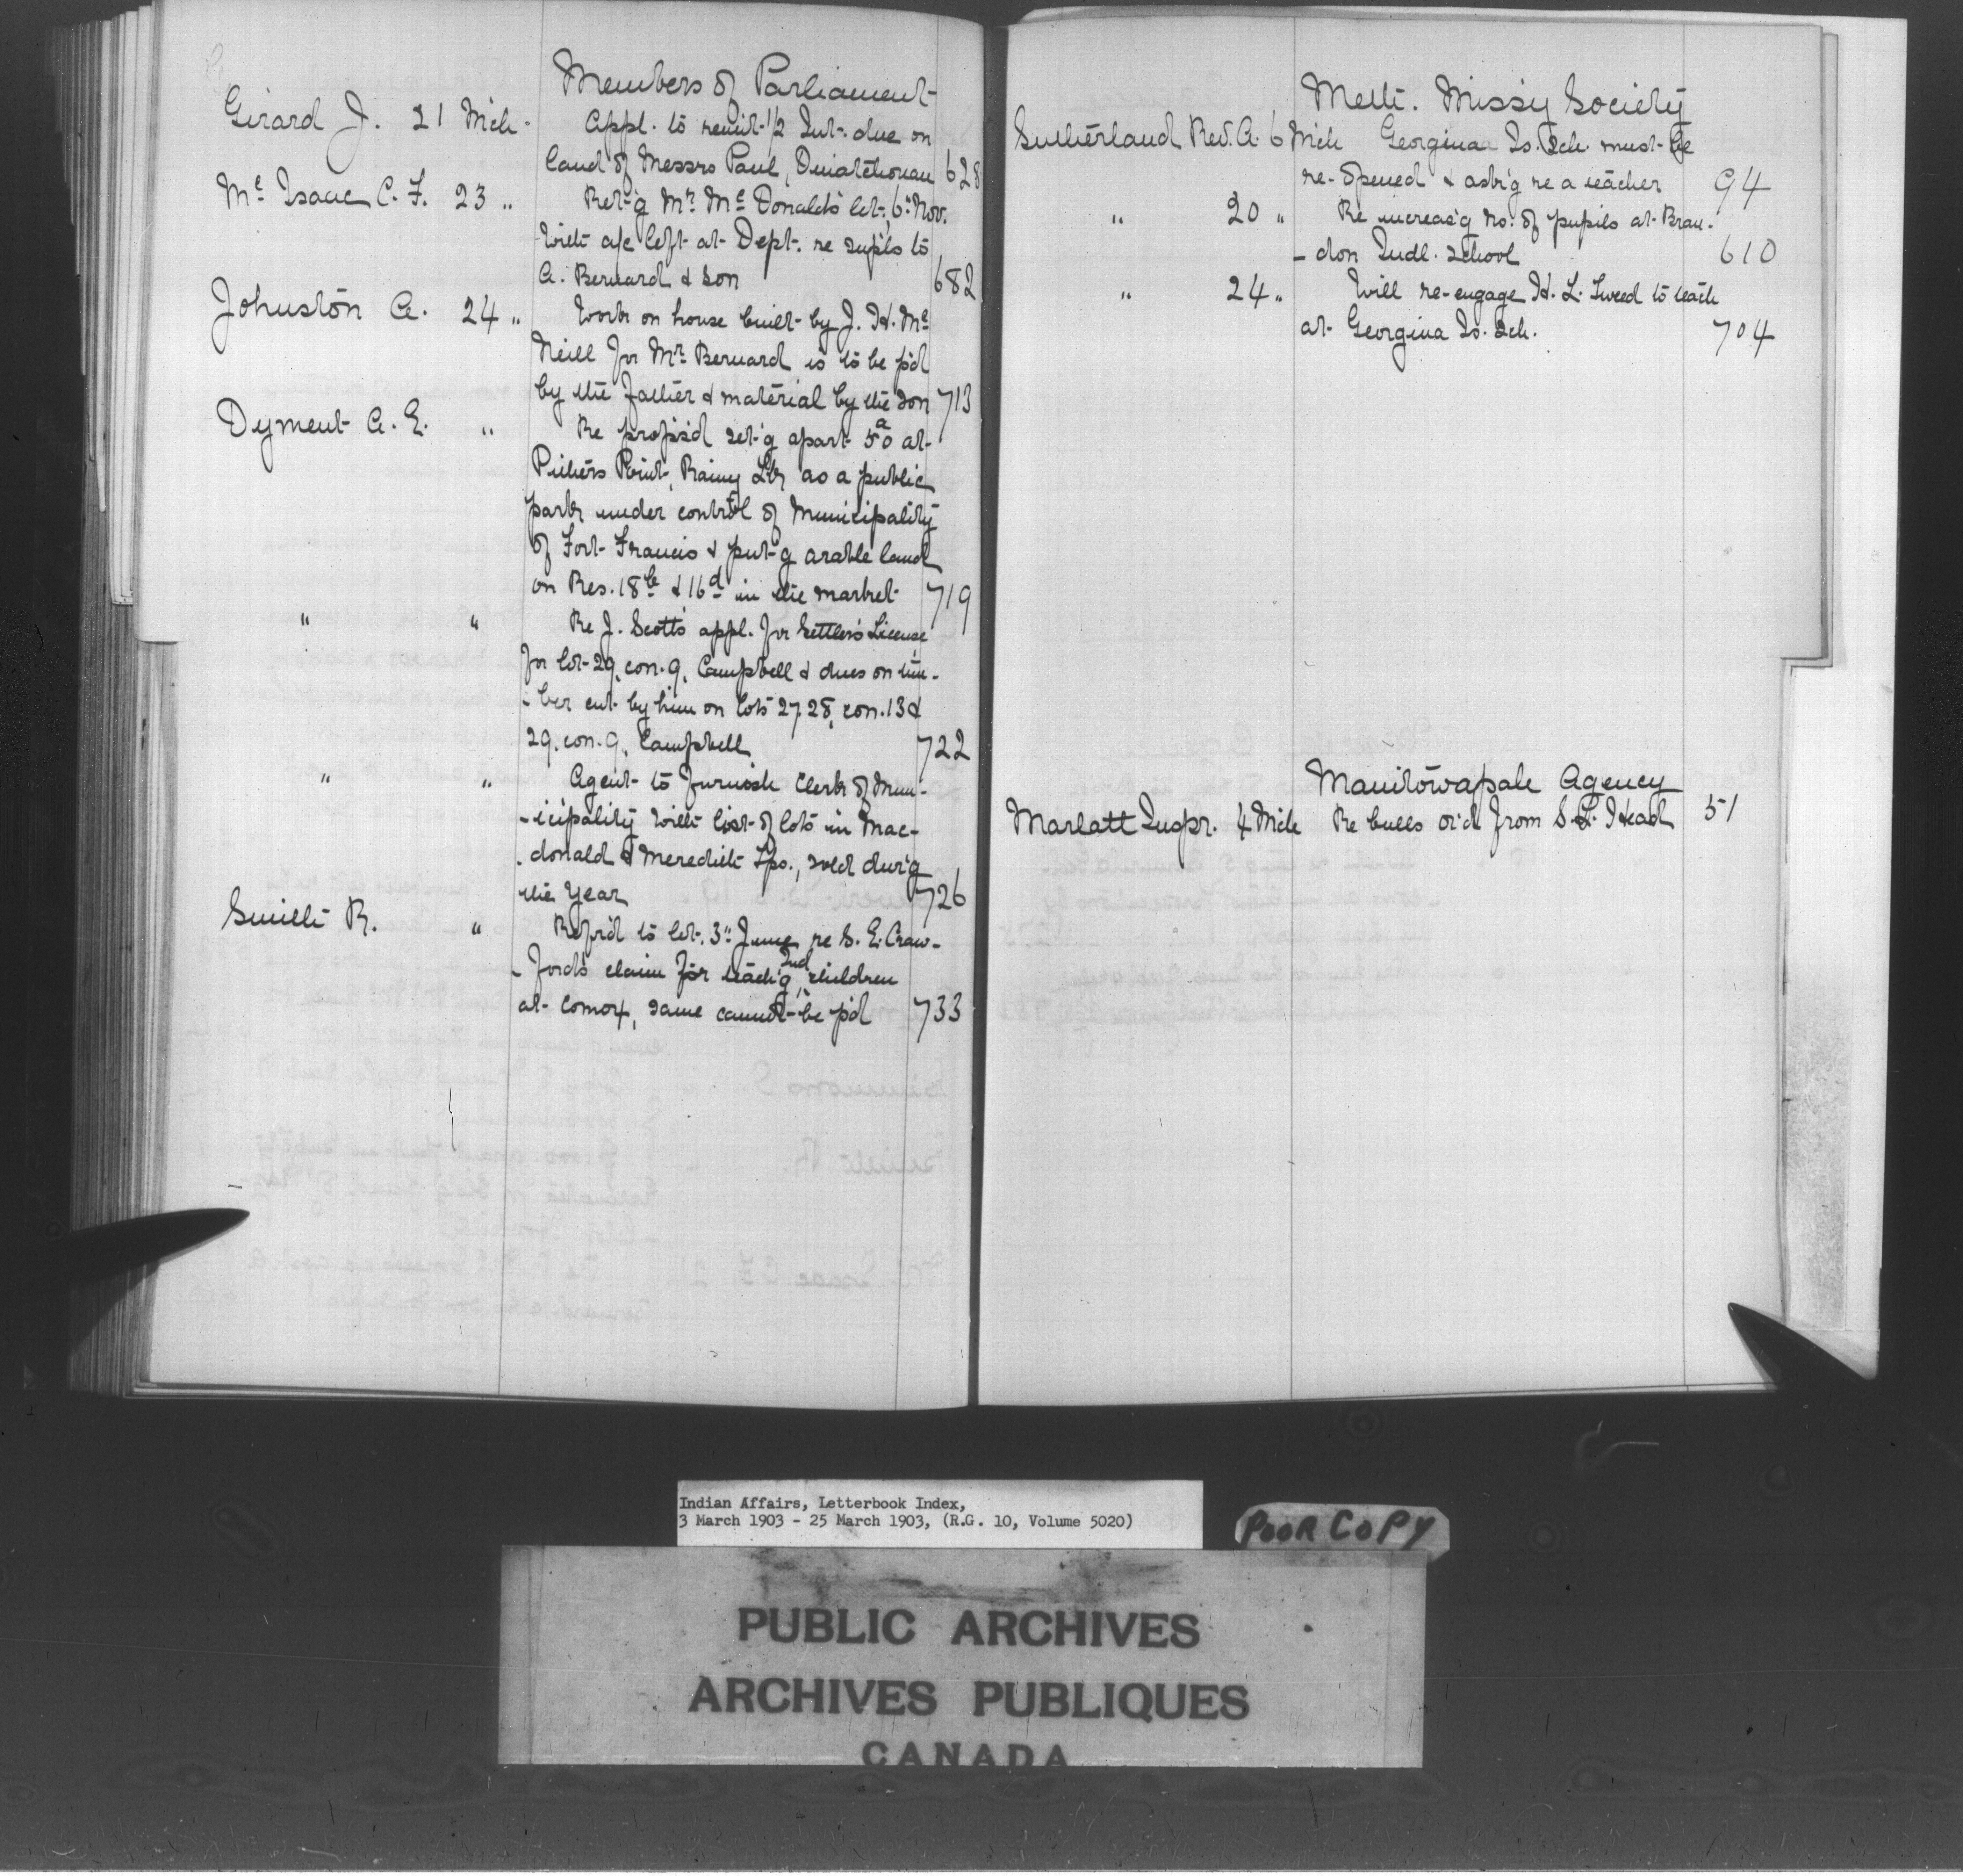 Members of Parliament
Girard J. 21 Mch. Appl. to remit 1/2 Int. due on
land of Messrs Paul, Ouiatchouan 628
McIsaac C. F. 23 " Ret'g Mr. McDonald's let. 6" Nov.
with a/c left at Dept. re supls to
A. Bernard & Son 682
Johnston A. 24 " Work on house built by J. H. Mc
Neill for Mr. Bernard is to be p'd
by the father & material by the son 713
Dyment A. E. " Re propos'd set'g apart 50a at
Pithers Point, Rainy Lk, as a public
park under control of Municipality
of Fort Francis & put'g arable land
on Res. 18b & 16d in the market 719
" " Re J. Scott's appl. for Settler's License
for lot 29, con. 9, Campbell & dues on tim-
-ber cut by him on lots 27.28, con. 13 &
29, con. 9, Campbell 722
" " Agent to furnish Clerk of Mun-
-icipality with list of lots in Mac-
-donald & Meredith Tps., sold dur'g
the year 726
Smith R. " Rep'd to let. 3" June re S. E. Craw-
-ford's claim for teach'g Ind children
at Comox, same cannot be p'd 733
Meth. Miss'y Society
Sutherland Rev. A. 6 Mch Georgina Is. Sch. must be
re-opened & ask'g re a teacher 94
" 20 " Re increas'g no. of pupils at Bran-
-don Indl. School 610
" 24 " Will re-engage H. L. Tweed to teach
at Georgina Is. Sch. 704
Manitowapah Agency
Marlatt Inspr. 4 Mch Re bulls o'rd from S. L. Head 51
Indian Affairs, Letterbook Index,
3 March 1903 - 25 March 1903, (R.G. 10, Volume 5020)
POOR COPY
PUBLIC ARCHIVES
ARCHIVES PUBLIQUES
CANADA